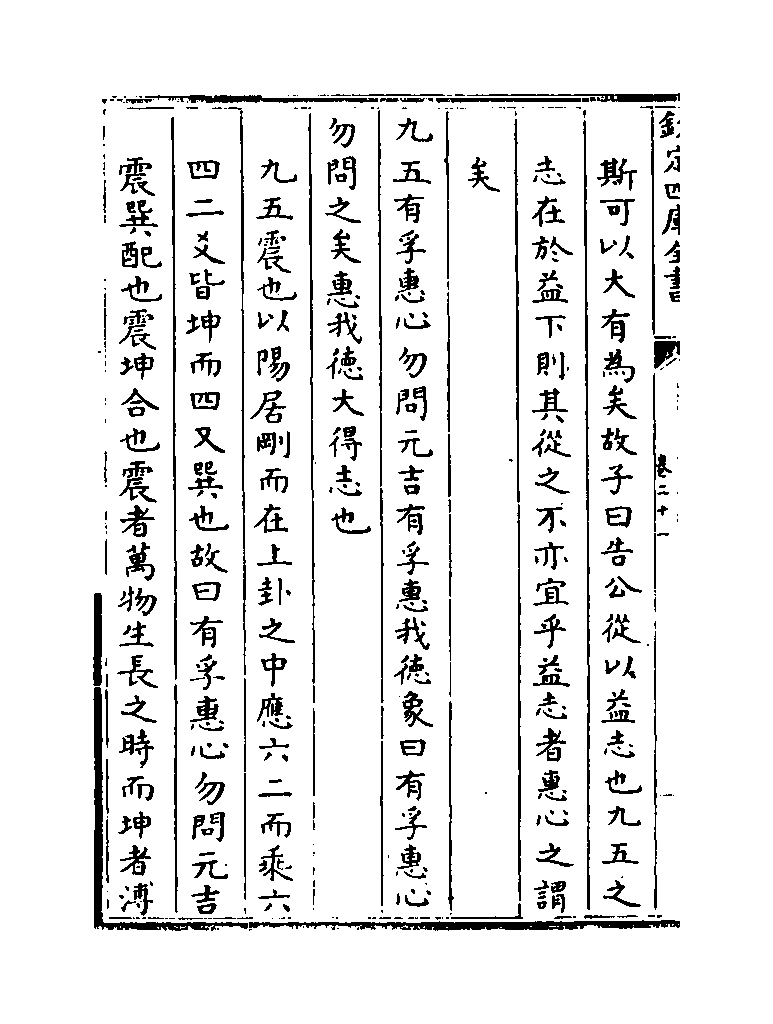 欽定四庫全書
卷二十一
斯可以大有為矣故子曰告公從以益志也九五之
志在於益下則其從之不亦宜乎益志者惠心之謂
矣
九五有孚惠心勿問元吉有孚惠我德象曰有孚惠心
勿問之矣惠我德大得志也
九五震也以陽居剛而在上卦之中應六二而乘六
四二爻皆坤而四又巽也故曰有孚惠心勿問元吉
震巽配也震坤合也震者萬物生長之時而坤者溥